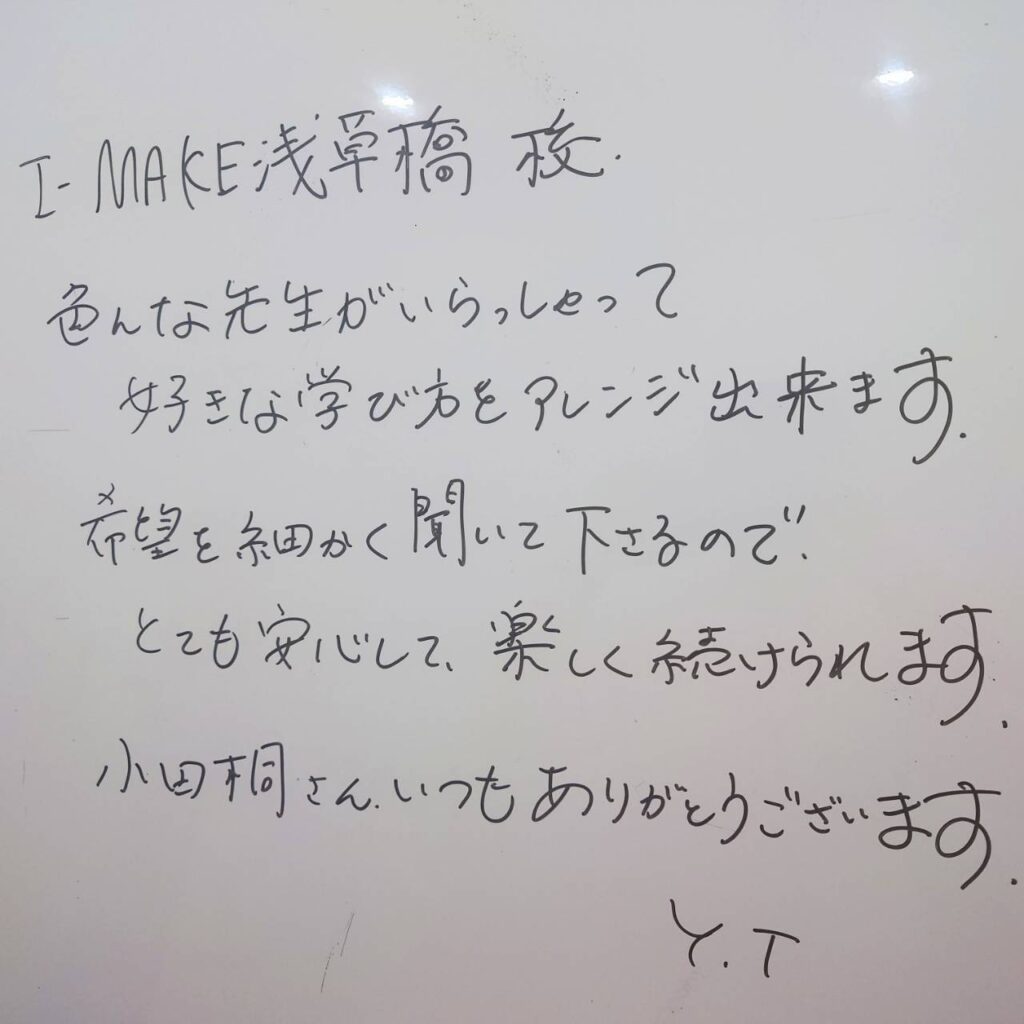 I-MAKE浅草橋 校.
色んな先生がいらっしゃって
好きな学び方をアレンジ出来ます.
希望を細かく聞いて下さるので.
とても安心して、楽しく続けられます.
小田桐さん.いつもありがとうございます.
Y.T